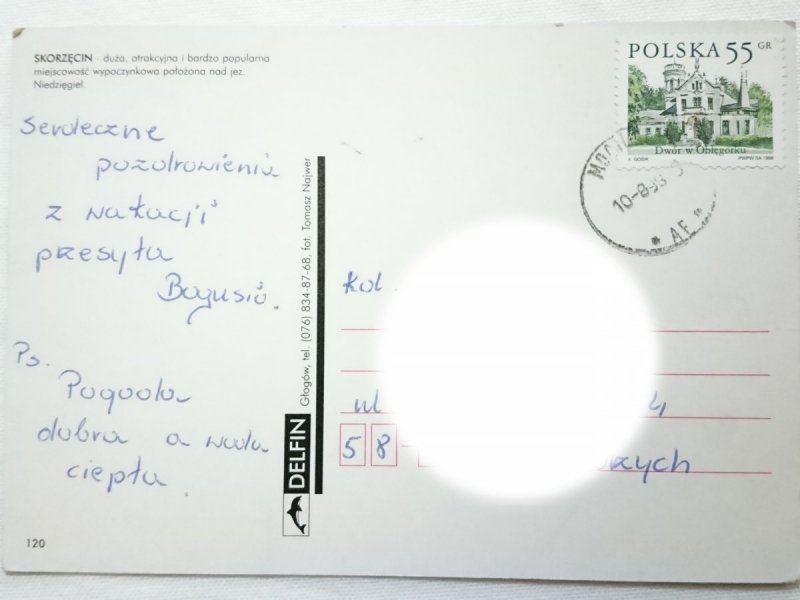 SKORZĘCIN - duża, atrakcyjna i bardzo popularna
miejscowość wypoczynkowa położona nad jez.
Niedzięgiel.
POLSKA 55 GR
Dwór w Oblęgorku
PWPW SA 1998
10-8-99
* AF *
Serdeczne
pozdrowienia
z wakacji
przesyła
Bogusia.
Ps.
Pogoda
dobra a woda
ciepła.
Głogów, tel. (076) 834-87-68, fot. Tomasz Najwer
DELFIN
Kol.
ul
4
58-
rzych
120